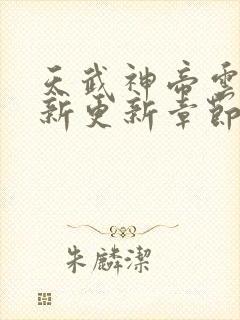 天武神帝雲
新更新章節
朱麟潔